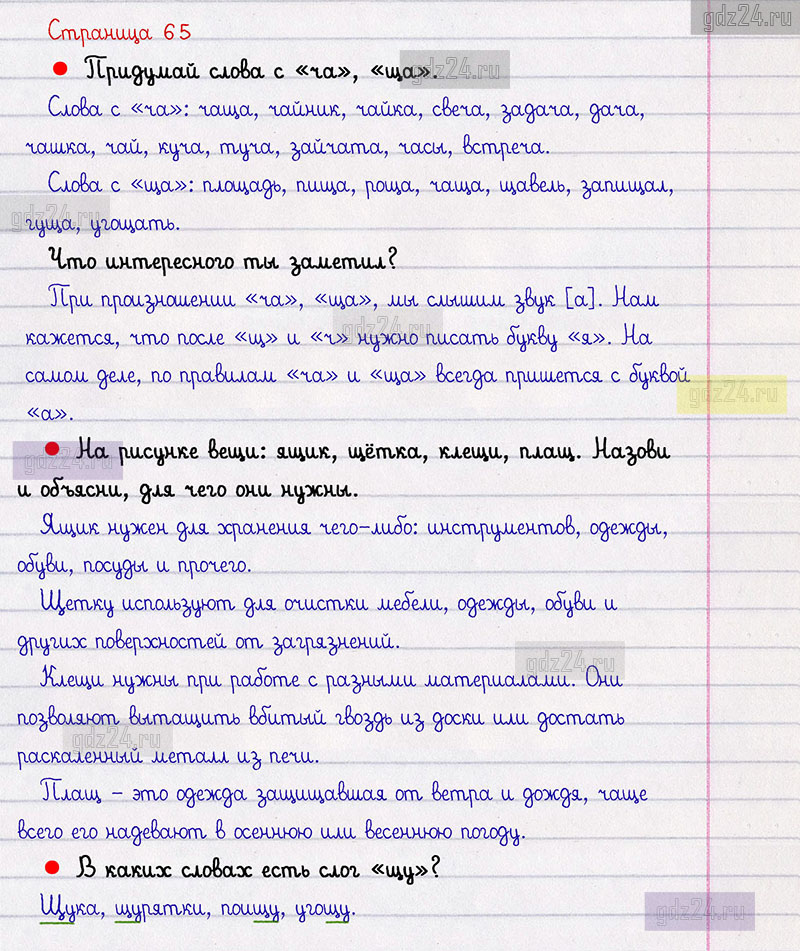 gdz24.ru
Страница 65
Придумай слова с «ча», «ща».
gdz24.ru
Слова с «ча»: чаща, чайник, чайка, свеча, задача, дача,
чашка, чай, куча, туча, зайчата, часы, встреча.
Слова с «ща»: площадь, пища, роща, чаща, щавель, запищал,
gdz24.ru
гуща, угощать.
Что интересного ты заметил?
При произношении «ча», «ща», мы слышим звук [а]. Нам
gdz24.ru
кажется, что после «щ» и «ч» нужно писать букву «я». На
самом деле, по правилам «ча» и «ща» всегда пришется с буквой
gdz24.ru
«а».
На рисунке вещи: ящик, щётка, клещи, плащ. Назови
gdz24.ru
и объясни, для чего они нужны.
Ящик нужен для хранения чего-либо: инструментов, одежды,
обуви, посуды и прочего.
Щетку используют для очистки мебели, одежды, обуви и
других поверхностей от загрязнений.
gdz24.ru
Клещи нужны при работе с разными материалами. Они
позволяют вытащить вбитый гвоздь из доски или достать
gdz24.ru
раскаленный металл из печи.
Плащ – это одежда защищавшая от ветра и дождя, чаще
всего его надевают в осеннюю или весеннюю погоду.
В каких словах есть слог «щу»?
Щука, щурятки, поищу, угощу.
gdz24.ru